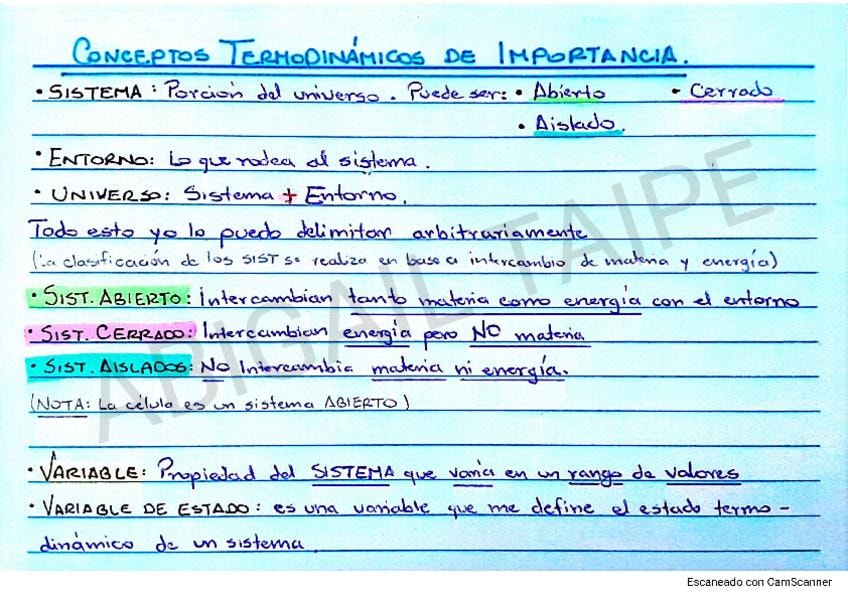 CONCEPTOS TERMODINÁMICOS DE IMPORTANCIA.
• SISTEMA: Porción del universo. Puede ser: • Abierto • Cerrado
• Aislado.
• ENTORNO: Lo que rodea al sistema.
• UNIVERSO: Sistema + Entorno.
Todo esto yo lo puedo delimitar arbitrariamente
(La clasificación de los SIST se realiza en base a intercambio de materia y energía)
• SIST. ABIERTO: Intercambian tanto materia como energía con el entorno
• SIST. CERRADO: Intercambian energía pero NO materia.
• SIST. AISLADOS: NO Intercambia materia ni energía.
(NOTA: La célula es un sistema ABIERTO)
• VARIABLE: Propiedad del SISTEMA que varía en un rango de valores
• VARIABLE DE ESTADO: es una variable que me define el estado termo-
dinámico de un sistema.
ABIGAIL TAIPE
Escaneado con CamScanner